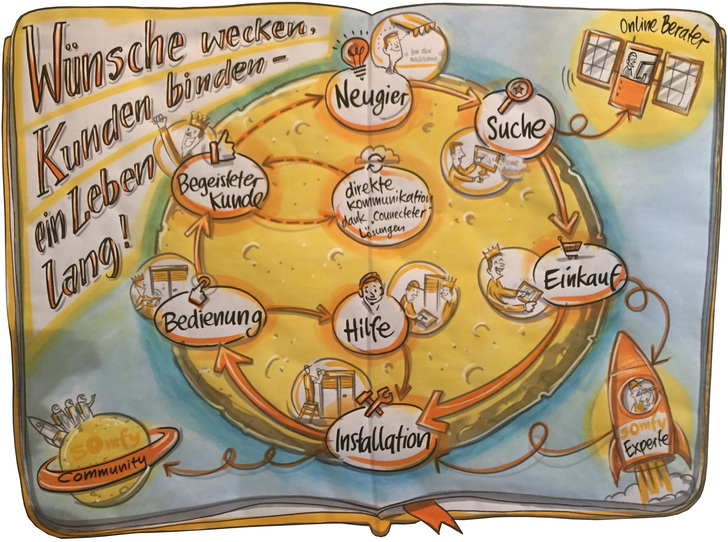 Wünsche wecken,
Kunden binden –
ein Leben
lang!
Online Berater
Neugier
Suche
Begeisteter
Kunde
direkte
Kommunikation
dank „connecteter“
Lösungen
Einkauf
Bedienung
Hilfe
Installation
somfy
Experte
somfy
Community